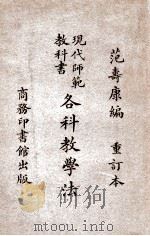 范壽康編 重訂本
現代師範
教科書
各科教學法
商務印書館出版
mtoou.info